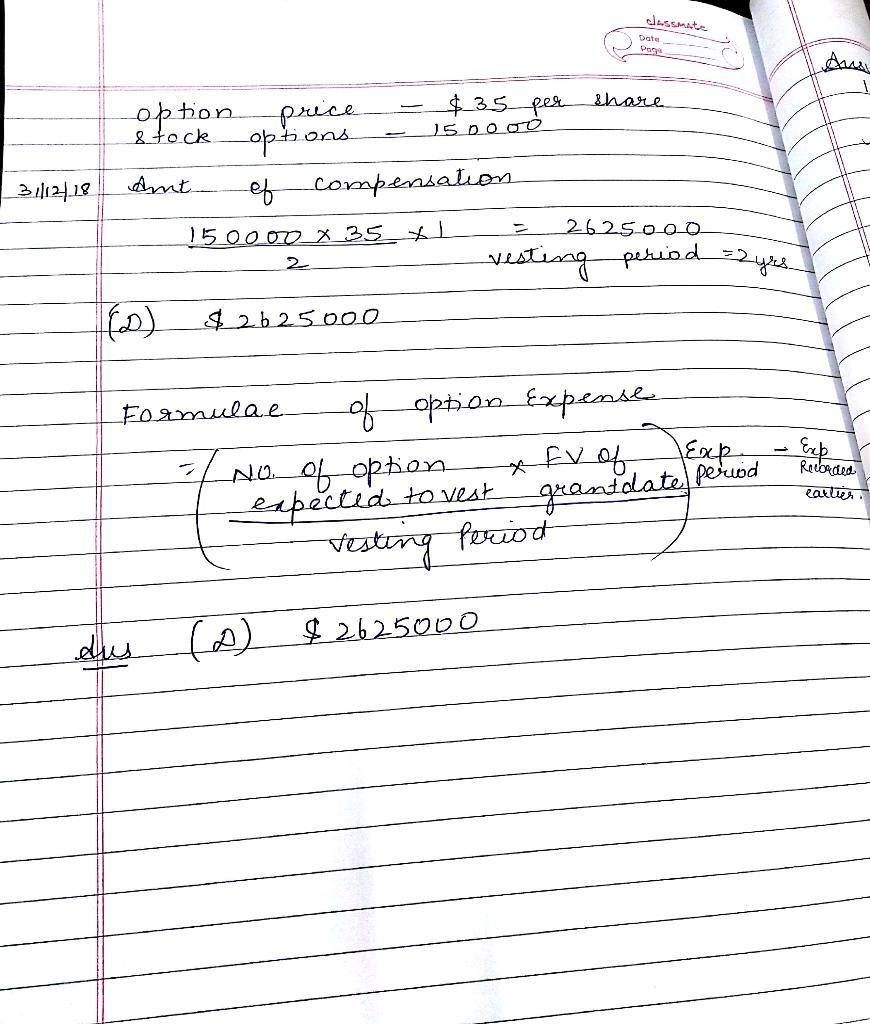 classmate
Date
Page
option price - $ 35 per share
stock options - 150000
31/12/18 Amt of compensation
150000 x 35 x 1 = 2625000
2
vesting period = 2 yrs
(D) $ 2625000
Formulae of option Expense
= ( No. of option x FV of ) Exp. - Exp
expected to vest grantdate period Recorded
Vesting Period earlier.
Ans (D) $ 2625000